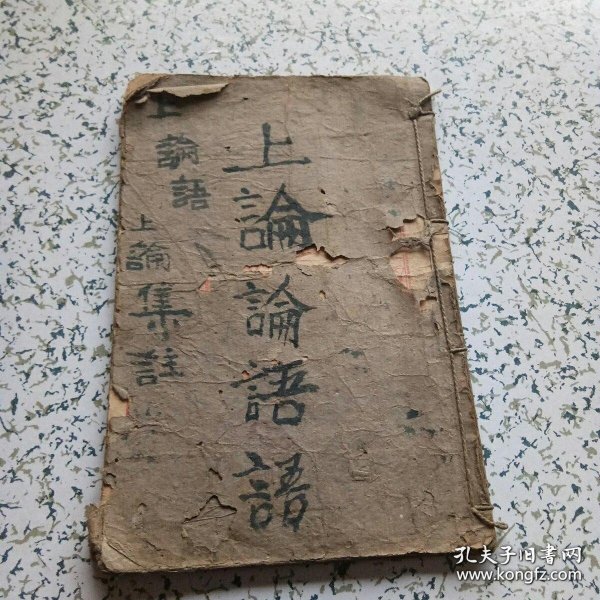 上論論語語
上論語
上論集註
孔夫子旧书网
www.kongfz.com